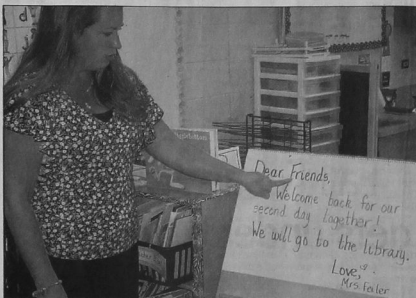 Dear Friends,
Welcome back for our
second day together!
We will go to the library.
Love,
Mrs.